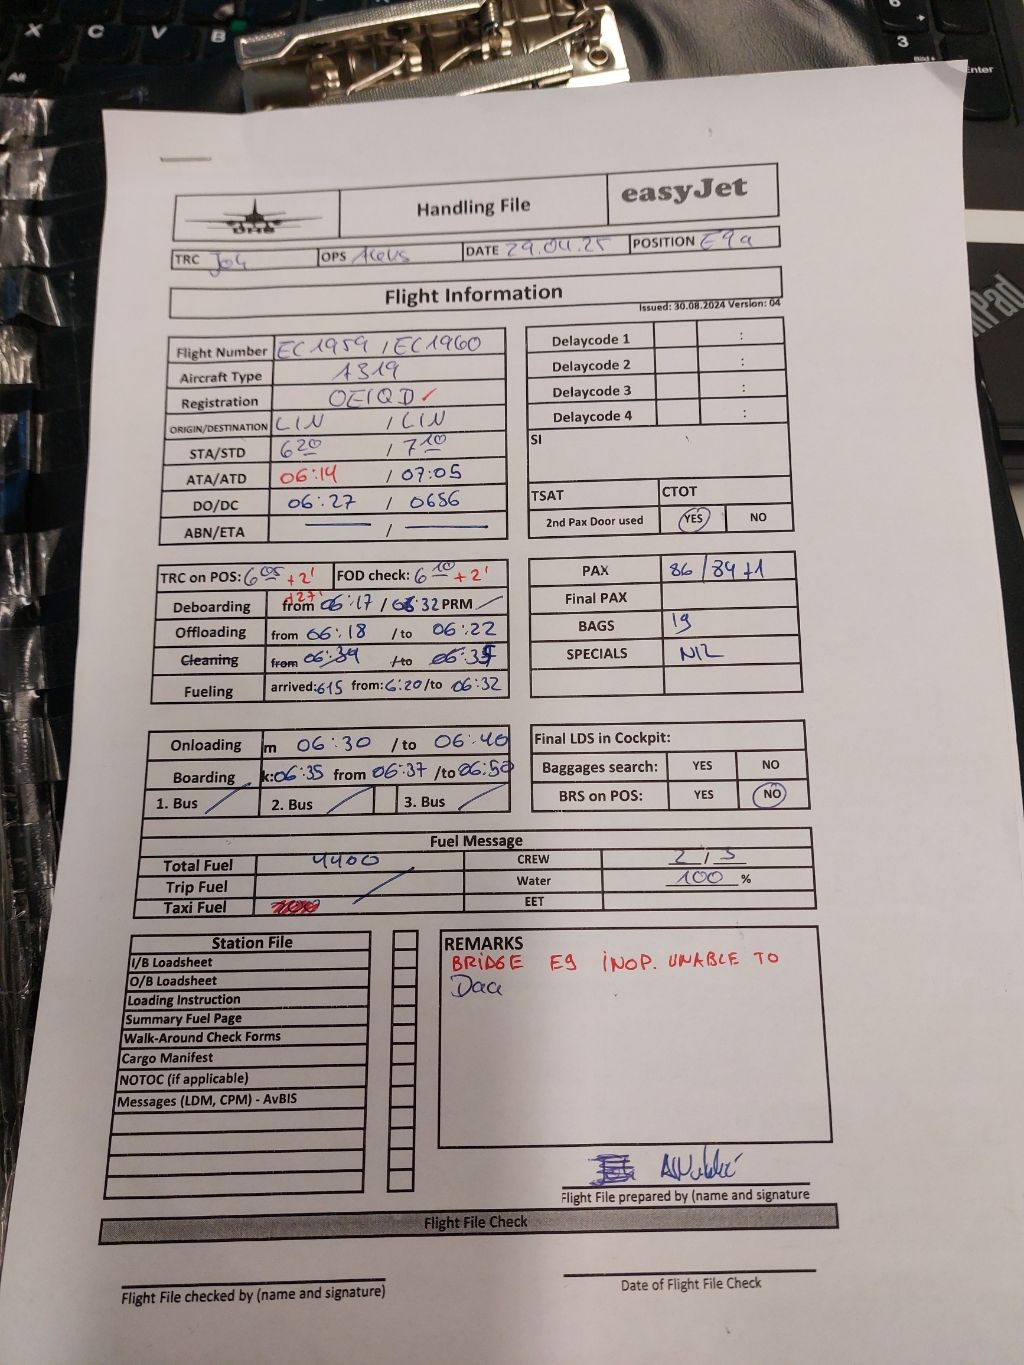 X C V B
Alt
6
3
Bild
Enter
Pad
Handling File
easyJet
TRC Joh OPS DATE 29.04.25 POSITION E9a
Flight Information
Issued: 30.08.2024 Version: 04
Flight Number EC1959 / EC1960
Aircraft Type A319
Registration OEIQD ✓
ORIGIN/DESTINATION LIN / LIN
STA/STD 6 20 / 7 10
ATA/ATD 06:14 / 07:05
DO/DC 06:27 / 0656
ABN/ETA /
Delaycode 1 :
Delaycode 2 :
Delaycode 3 :
Delaycode 4 :
SI
TSAT CTOT
2nd Pax Door used YES NO
TRC on POS: 6 05 +2' FOD check: 6 10 +2'
+27'
Deboarding from 06:17 / 06:32 PRM
Offloading from 06:18 / to 06:22
Cleaning from 06:34 / to 06:35
Fueling arrived: 615 from: 6:20 / to 06:32
PAX 86 / 84 +1
Final PAX
BAGS 19
SPECIALS NIL
Onloading m 06:30 / to 06:40
Boarding k: 06:35 from 06:37 / to 06:50
1. Bus 2. Bus 3. Bus
Final LDS in Cockpit:
Baggages search: YES NO
BRS on POS: YES NO
Fuel Message
Total Fuel 4400 CREW 2 / 3
Trip Fuel Water 100 %
Taxi Fuel EET
Station File
I/B Loadsheet
O/B Loadsheet
Loading Instruction
Summary Fuel Page
Walk-Around Check Forms
Cargo Manifest
NOTOC (if applicable)
Messages (LDM, CPM) - AvBIS
REMARKS
BRIDGE E9 INOP. UNABLE TO
Flight File prepared by (name and signature
Flight File Check
Flight File checked by (name and signature)
Date of Flight File Check